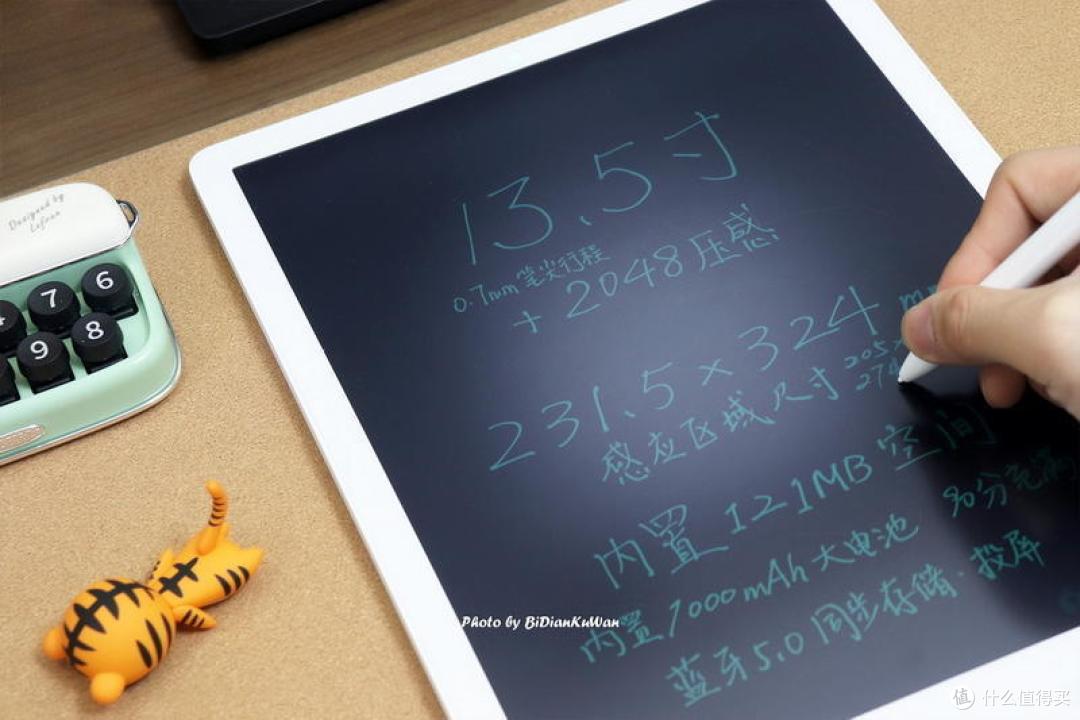 13.5寸
0.7mm笔尖行程
+ 2048压感
231.5×324 mm
感应区域尺寸 205×
274
内置121MB空间
内置1000mAh大电池 90分充满
蓝牙5.0同步存储·投屏
Designed by
Lofree
7 6
9 8
Photo by BiDianKuWan
值 什么值得买